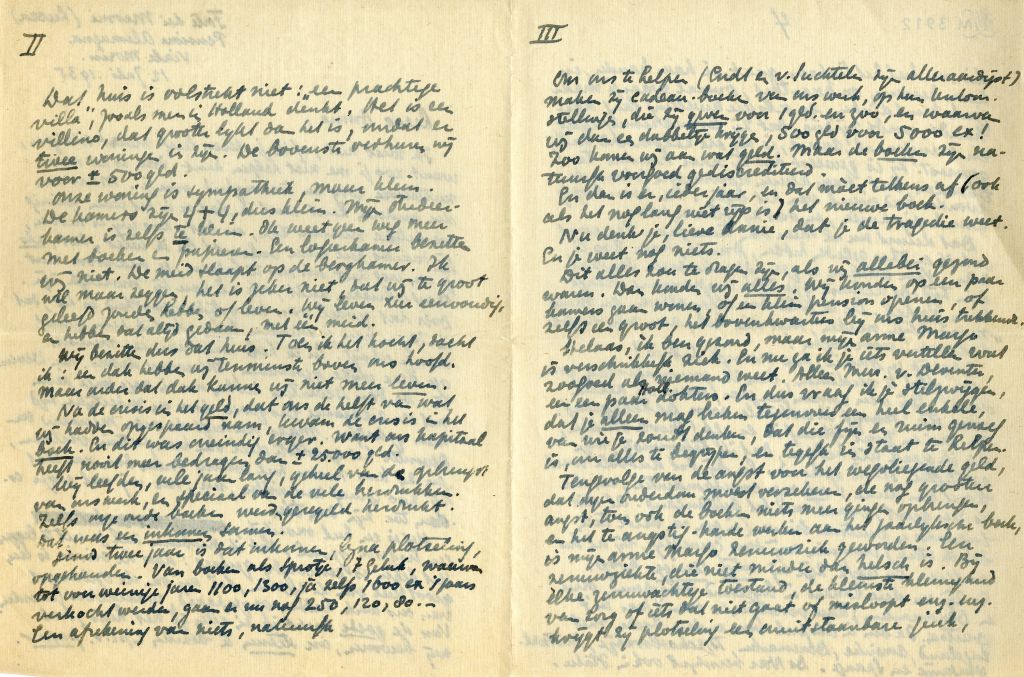 II
Dat huis is volstrekt niet: "een prachtige
villa", zooals men in Holland denkt. Het is een
villino, dat grooter lijkt dan het is, omdat er
twee woningen in zijn. De bovenste verhuren wij
voor ± 500 gld.
Onze woning is sympathiek, maar klein.
De kamers zijn 4 + 4, dus klein. Mijn studeer-
kamer is zelfs te klein. Ik weet geen weg meer
met boeken en papieren. Een logeerkamer bezitten
wij niet. De meid slaapt op de bergkamer. Ik
wil maar zeggen, het is zeker niet, dat wij te groot
geleefd zouden hebben of leven. Wij leven zeer eenvoudig,
en hebben dat altijd gedaan, met één meid.
Wij bezitten dus dat huis. Toen ik het kocht, dacht
ik: een dak hebben wij tenminste boven ons hoofd.
Maar onder dat dak kunnen wij niet meer leven.
Na de crisis in het geld, dat ons de helft van wat
wij hadden opgespaard nam, kwam de crisis in het
boek. En dit was oneindig erger. Want ons kapitaal
heeft nooit meer bedragen dan ± 25000 gld.
Wij leefden, vele jaren lang, geheel van de opbrengst
van ons werk, en speciaal van de vele herdrukken.
Zelfs mijn oude boeken werden geregeld herdrukt.
Dat was een inkomen samen.
Sinds twee jaar is dat inkomen, bijna plotseling,
opgehouden. Van boeken als Sprotje, 't Geluk, waarvan
tot voor weinige jaren 1100, 1300, ja zelfs 1600 ex 's jaars
verkocht werden, gaan er nu nog 250, 120, 80.–
Een afrekening van niets, natuurlijk
III
Om ons te helpen (Endt en v. Suchtelen zijn alleraardigst)
maken zij cadeau-boeken van ons werk, op hun
stellinge, die zij geven voor 1 gld. en zoo, en waarvan
wij dan een dubbeltje krijgen, 500 gld voor 5000 ex!
Zoo komen wij aan wat geld. Maar de boeken zijn na-
tuurlijk voorgoed gediscrediteerd.
En dan is er, ieder jaar, en dat móet telkens af (ook
als het nog lang niet rijp is) het nieuwe boek.
Nu denk je, lieve Annie, dat je de tragedie weet.
En je weet nog niets.
Dit alles zou te dragen zijn, als wij allebei gezond
waren. Dan konden wij alles. Wij konden op een paar
kamers gaan wonen, of een klein pension openen, of
zelfs een groot, het bovenkwartier bij ons huis trekkende.
Helaas, ik ben gezond, maar mijn arme Margo
is verschrikkelijk ziek. En nu ga ik je iets vertellen wat
zoogoed als niemand weet. Alleen Mevr. v. Deventer,
en een paar dokters. En dus vraag ik je stilzwijgen,
dat je alleen mag breken tegenover een heel enkele,
van wie je zoudt denken, dat die fijn en ruim genoeg
is, om alles te begrijpen, en tegelijk in staat te helpen.
Tengevolge van de angst voor het wegvliegende geld,
dat den ouderdom moest verzekeren, de nog grootere
angst, toen ook de boeken niets meer gingen opbrengen,
en het te angstig-harde werken aan het jaarlijksche boek,
is mijn arme Margo zenuwziek geworden. Een
zenuwziekte, die niet minder dan helsch is. Bij
elke zenuwachtige toestand, de kleinste kleinigheid
van zorg of iets dat niet gaat of misloopt enz. enz.
krijgt zij plotseling een onuitstaanbare jeuk,